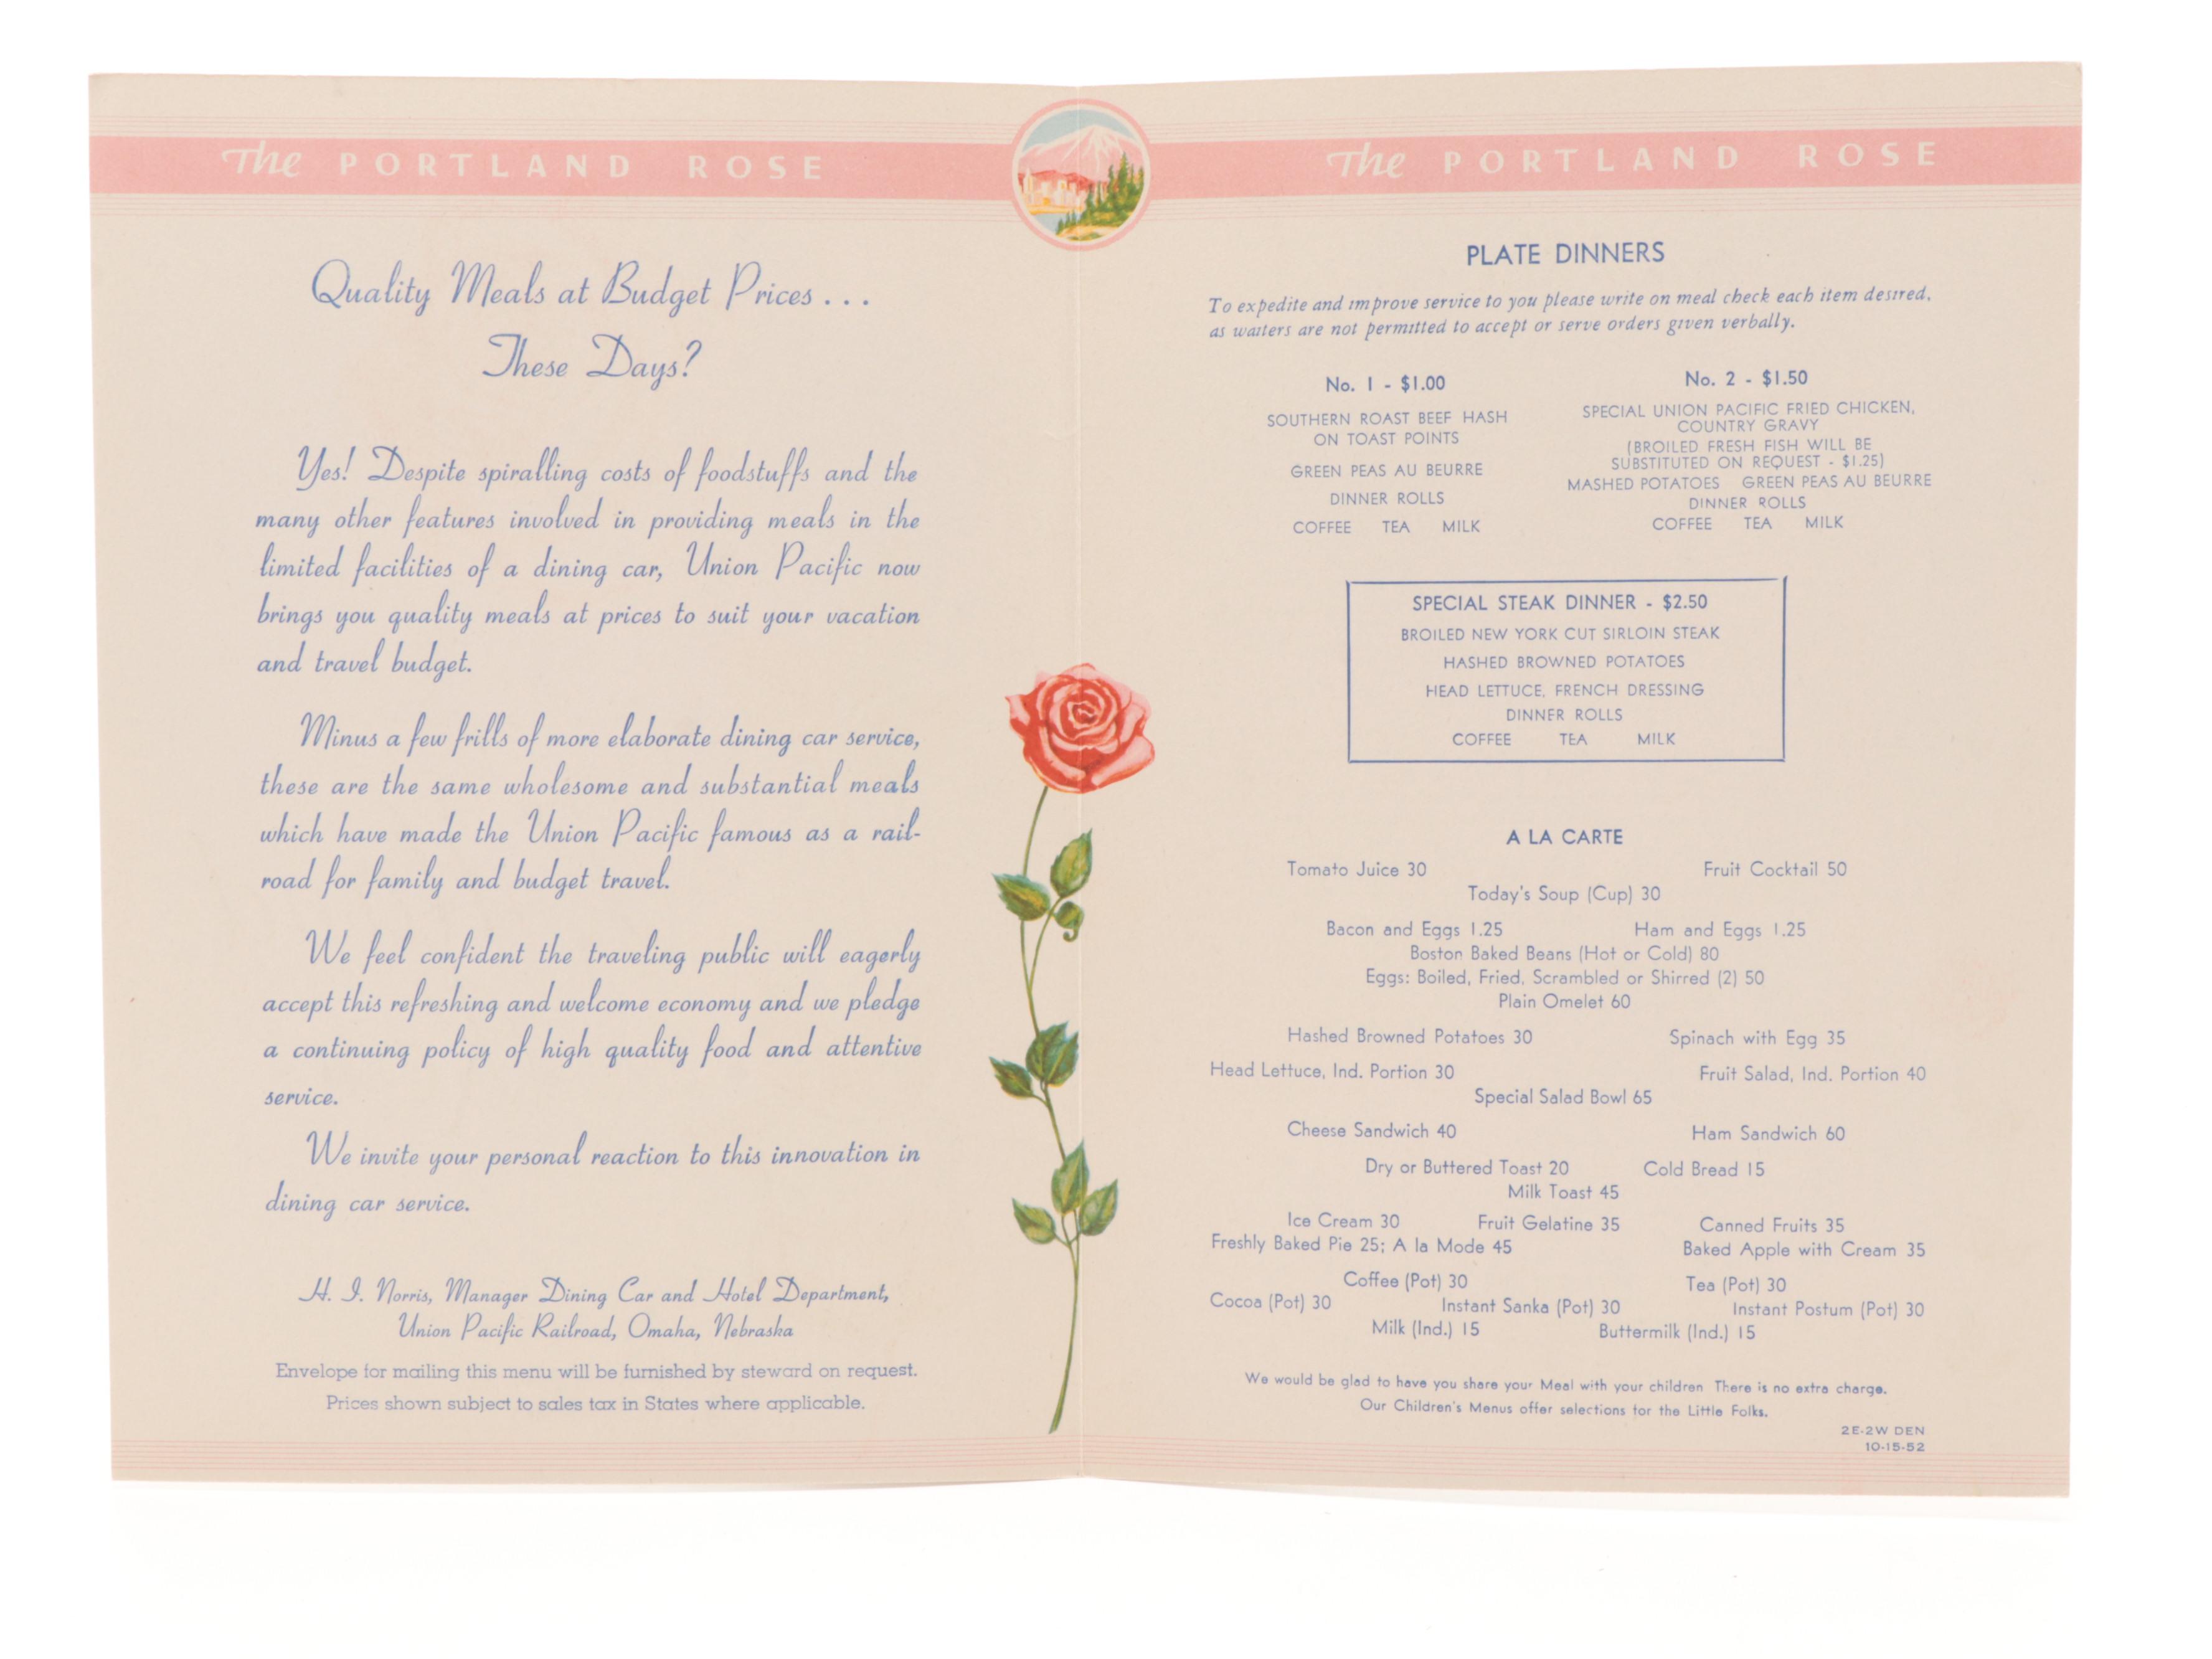 The PORTLAND ROSE
Quality Meals at Budget Prices . . .
These Days?
Yes! Despite spiralling costs of foodstuffs and the
many other features involved in providing meals in the
limited facilities of a dining car, Union Pacific now
brings you quality meals at prices to suit your vacation
and travel budget.
Minus a few frills of more elaborate dining car service,
these are the same wholesome and substantial meals
which have made the Union Pacific famous as a rail-
road for family and budget travel.
We feel confident the traveling public will eagerly
accept this refreshing and welcome economy and we pledge
a continuing policy of high quality food and attentive
service.
We invite your personal reaction to this innovation in
dining car service.
H. I. Norris, Manager Dining Car and Hotel Department,
Union Pacific Railroad, Omaha, Nebraska
Envelope for mailing this menu will be furnished by steward on request.
Prices shown subject to sales tax in States where applicable.
The PORTLAND ROSE
PLATE DINNERS
To expedite and improve service to you please write on meal check each item desired,
as waiters are not permitted to accept or serve orders given verbally.
No. 1 - $1.00
SOUTHERN ROAST BEEF HASH
ON TOAST POINTS
GREEN PEAS AU BEURRE
DINNER ROLLS
COFFEE TEA MILK
No. 2 - $1.50
SPECIAL UNION PACIFIC FRIED CHICKEN,
COUNTRY GRAVY
(BROILED FRESH FISH WILL BE
SUBSTITUTED ON REQUEST - $1.25)
MASHED POTATOES GREEN PEAS AU BEURRE
DINNER ROLLS
COFFEE TEA MILK
SPECIAL STEAK DINNER - $2.50
BROILED NEW YORK CUT SIRLOIN STEAK
HASHED BROWNED POTATOES
HEAD LETTUCE, FRENCH DRESSING
DINNER ROLLS
COFFEE TEA MILK
A LA CARTE
Tomato Juice 30 Fruit Cocktail 50
Today's Soup (Cup) 30
Bacon and Eggs 1.25 Ham and Eggs 1.25
Boston Baked Beans (Hot or Cold) 80
Eggs: Boiled, Fried, Scrambled or Shirred (2) 50
Plain Omelet 60
Hashed Browned Potatoes 30 Spinach with Egg 35
Head Lettuce, Ind. Portion 30 Fruit Salad, Ind. Portion 40
Special Salad Bowl 65
Cheese Sandwich 40 Ham Sandwich 60
Dry or Buttered Toast 20 Cold Bread 15
Milk Toast 45
Ice Cream 30 Fruit Gelatine 35 Canned Fruits 35
Freshly Baked Pie 25; A la Mode 45 Baked Apple with Cream 35
Coffee (Pot) 30 Tea (Pot) 30
Cocoa (Pot) 30 Instant Sanka (Pot) 30 Instant Postum (Pot) 30
Milk (Ind.) 15 Buttermilk (Ind.) 15
We would be glad to have you share your Meal with your children There is no extra charge.
Our Children's Menus offer selections for the Little Folks.
2E-2W DEN
10-15-52